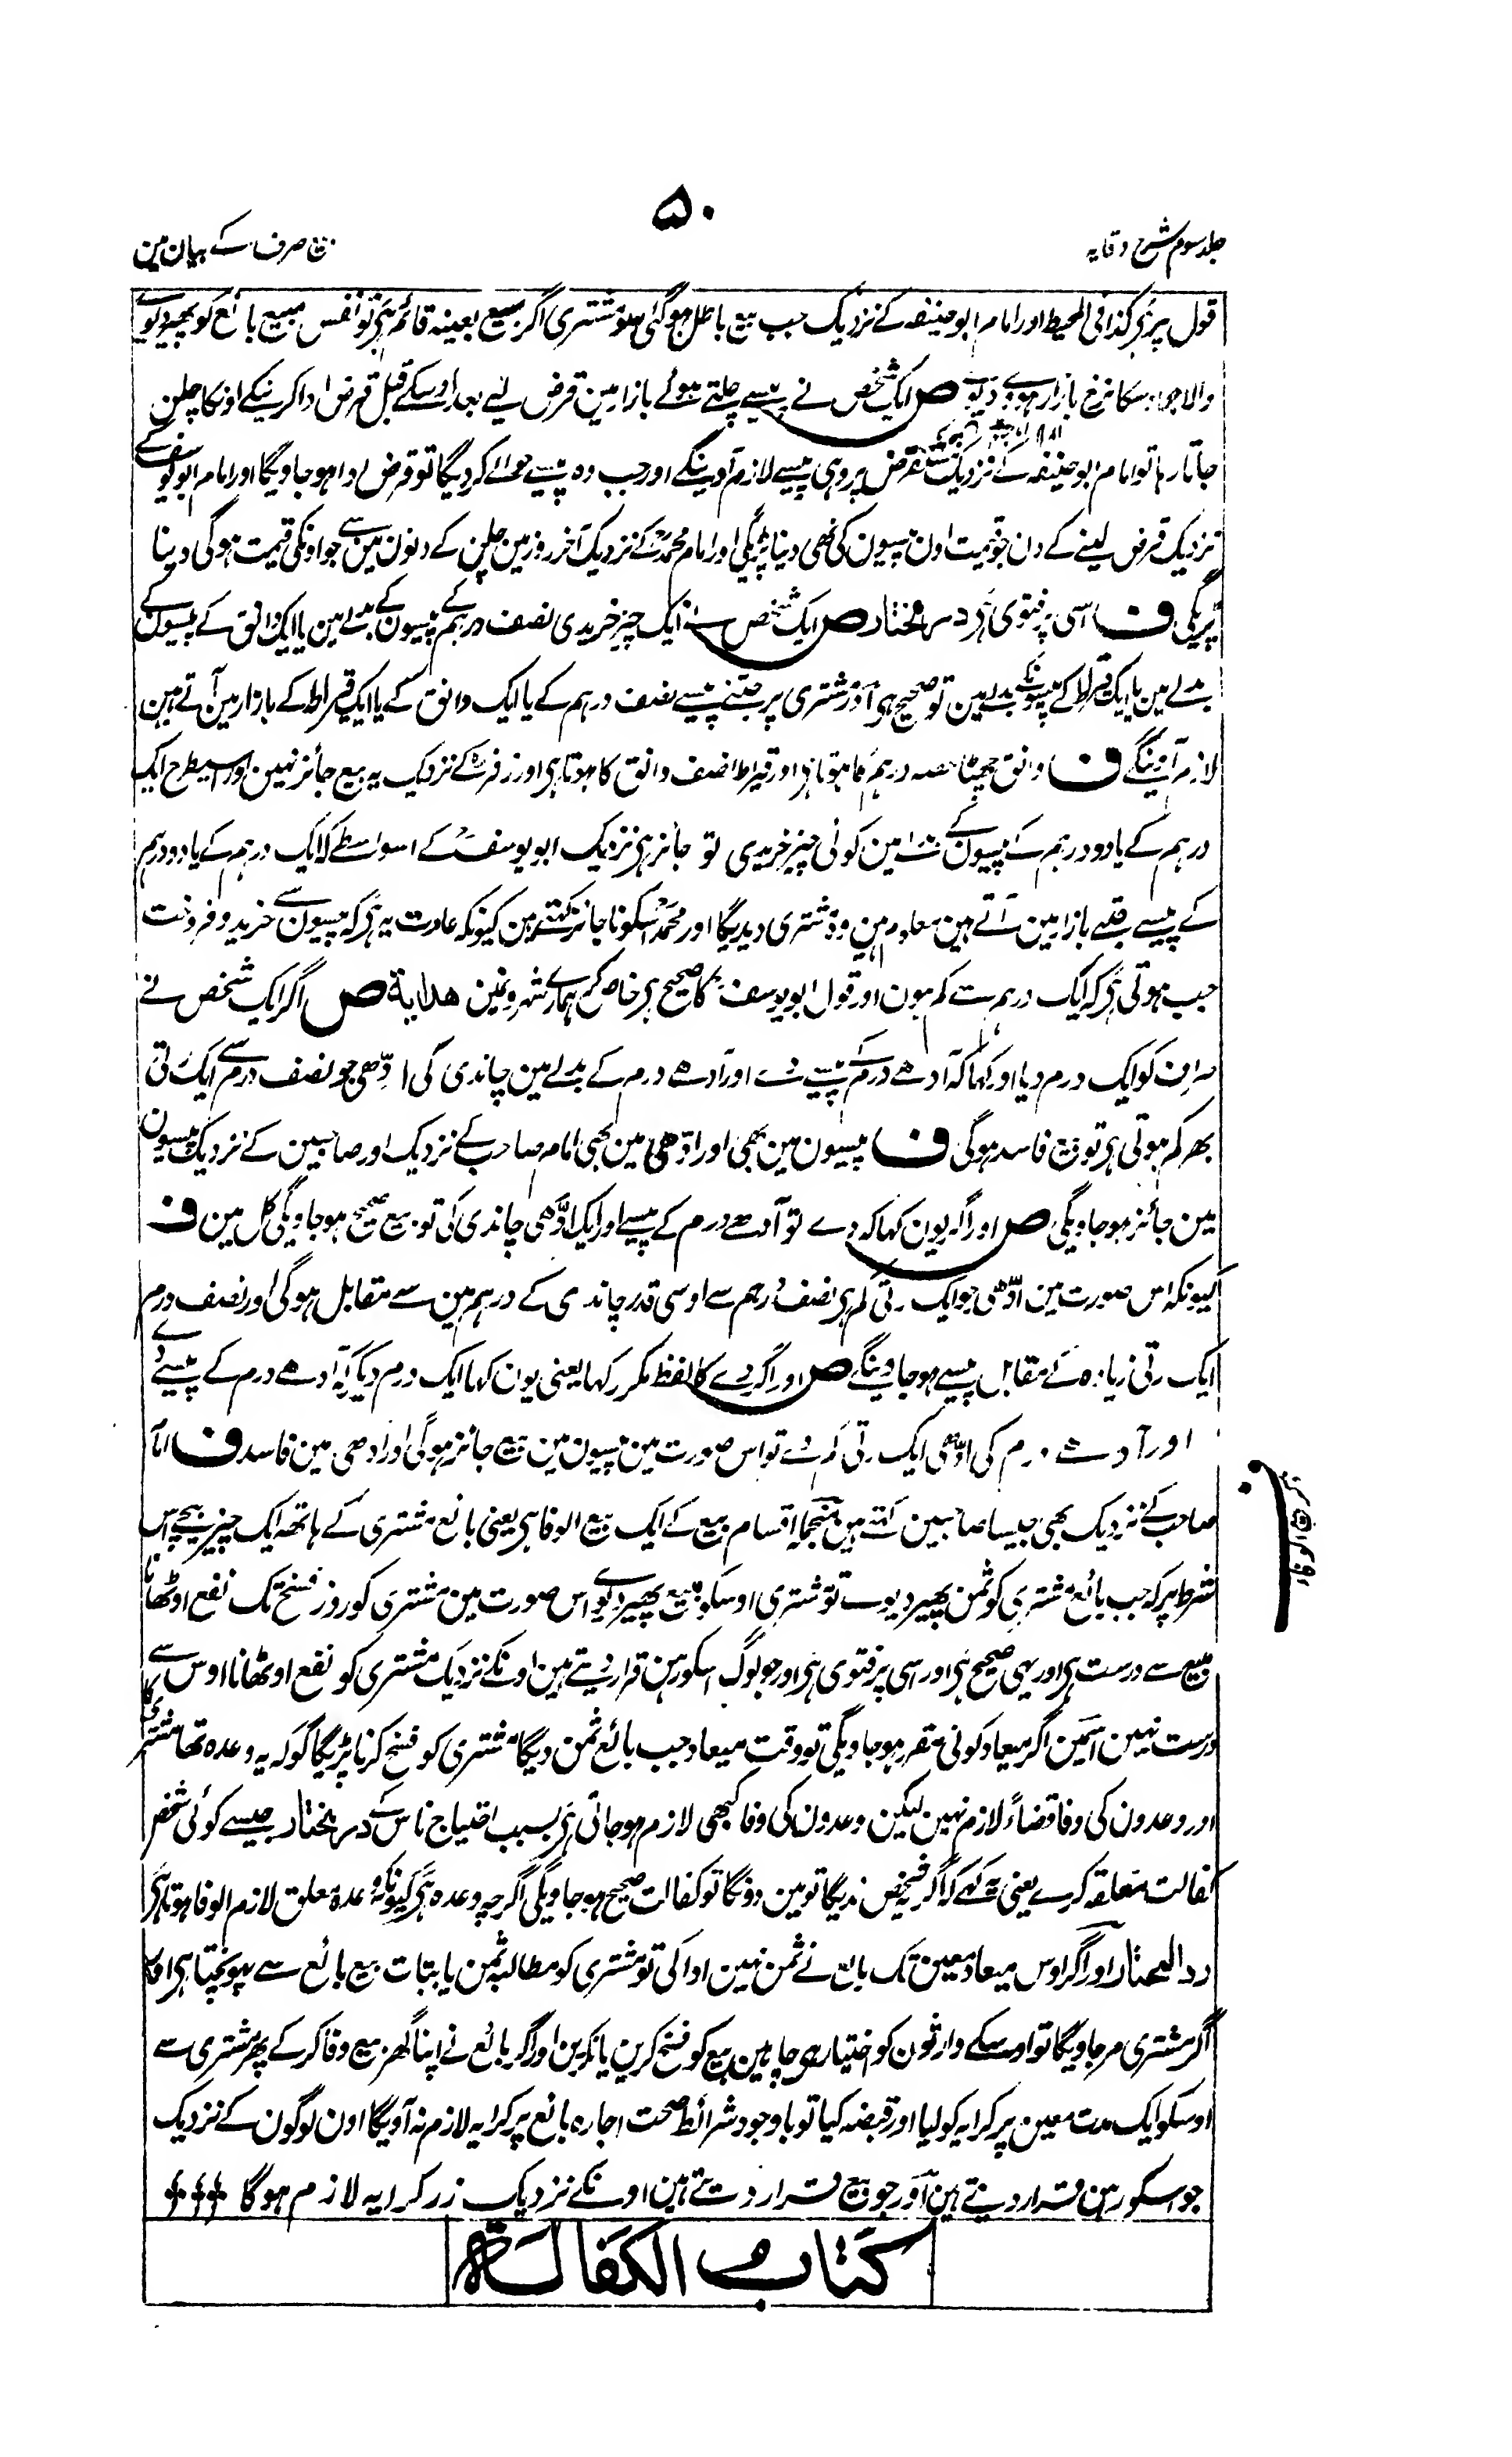 ۵۰
جلد سوم شرح وقایہ
بیع صرف کے بیان مین
قول پر ہی کذا فی المحیط اور امام ابو حنیفہ کے نزدیک جب بیع باطل ہوگئی تو مشتری اگر مبیع بعینہ قائم ہی تو نفس مبیع بائع کو پھیر دیوے
والا جو اسکا نرخ بازار ہووے دیوے ص ایک شخص نے پیسے چلتے ہوئے بازار مین قرض لیے بعد اوسکے قبل قرض ادا کرنیکے اونکا چلن
جاتا رہا تو امام ابو حنیفہ کے نزدیک مستقرض پر وہی پیسے لازم آوینگے اور جب وہ پیسے حوالے کر دیگا تو قرض ادا ہو جاویگا اور امام ابو یوسف کے
نزدیک قرض لینے کے دن جو قیمت اون پیسون کی تھی دینا پڑیگی اور امام محمدؒ کے نزدیک آخر روز مین چلن کے دنون مین سے جو اونکی قیمت ہوگی دینا
پڑیگی ف اسی پر فتوی ہی در مختار ص ایک شخص نے ایک چیز خریدی نصف درہم کے پیسون کے بدلے مین یا ایک دانق کے پیسون کے
بدلے مین یا ایک قیراط کے پیسونکے بدلے مین تو صحیح ہی اور مشتری پر جتنے پیسے نصف درہم کے یا ایک دانق کے یا ایک قیراط کے بازار مین آتے ہین
لازم آوینگے ف دانق چھٹا حصہ درہم کا ہوتا ہی اور قیراط نصف دانق کا ہوتا ہی اور زفرؒ کے نزدیک یہ بیع جائز نہین اور اسیطرح ایک
درہم کے یا دو درہم کے پیسون کے بدلے مین کوئی چیز خریدی تو جائز ہی نزدیک ابو یوسفؒ کے اسواسطے کہ ایک درہم کے یا دو درہم
کے پیسے جتنے بازار مین آتے ہین معلوم ہین وہ مشتری دیدیگا اور محمدؒ اسکو ناجائز کہتے ہین کیونکہ عادت یہ ہی کہ پیسون سے خرید و فروخت
جب ہوتی ہی کہ ایک درہم سے کم ہون اور قول ابو یوسف کا صحیح ہی خاص کر ہمارے شہرونمین ھدایة ص اگر ایک شخص نے
صراف کو ایک درم دیا اور کہا کہ آدھے درم کے پیسے دے اور آدھے درم کے بدلے مین چاندی کی ادّھی جو نصف درم سے ایک رتی
بھر کم ہوتی ہی تو بیع فاسد ہوگی ف پیسون مین بھی اور ادّھی مین بھی امام صاحب کے نزدیک اور صاحبین کے نزدیک پیسون
مین جائز ہو جاویگی ص اور اگر یون کہا کہ دے تو آدھے درم کے پیسے اور ایک ادّھی چاندی کی تو بیع صحیح ہو جاویگی کل مین ف
کیونکہ اس صورت مین ادّھی جو ایک رتی کم ہی نصف درہم سے اوسی قدر چاندی کے درہم مین سے مقابل ہوگی اور نصف درم
ایک رتی زیادہ کے مقابل پیسے ہو جاوینگے ص اور اگر دے کا لفظ مکرر کہا یعنی یون کہا ایک درم دیکر آدھے درم کے پیسے دے
اور آدھے درم کی ادّھی ایک رتی کم دے تو اس صورت مین پیسون مین بیع جائز ہوگی اور ادھی مین فاسد ف امام
صاحب کے نزدیک بھی جیسا صاحبین کہتے ہین منجملہ اقسام بیع کے ایک بیع الوفا ہی یعنی بائع مشتری کے ہاتھ ایک چیز بیچے اس
شرط پر کہ جب بائع مشتری کو ثمن پھیر دیوے تو مشتری اوسکو مبیع پھیر دیوے اس صورت مین مشتری کو روز فسخ تک نفع اوٹھانا
مبیع سے درست ہی اور یہی صحیح ہی اور اسی پر فتوی ہی اور جو لوگ اسکو رہن قرار دیتے ہین اونکے نزدیک مشتری کو نفع اوٹھانا اوس سے
درست نہین اسمین اگر میعاد کوئی مقرر ہو جاویگی تو وقت میعاد جب بائع ثمن دیگا مشتری کو فسخ کرنا پڑیگا گو کہ یہ وعدہ تھا مشتری کا
اور وعدون کی وفا قضاءً لازم نہین لیکن وعدون کی وفا کبھی لازم ہو جاتی ہی بسبب احتیاج ناس کے در مختار جیسے کوئی شخص
کفالت معلقہ کرے یعنی یہ کہے کہ اگر فلان شخص ندیگا تو مین دونگا تو کفالت صحیح ہو جاویگی اگرچہ وعدہ ہی کیونکہ وعدہ معلق لازم الوفا ہوتا ہی
رد المحتار اور اگر اوس میعاد معین تک بائع نے ثمن نہین ادا کی تو مشتری کو مطالبہ ثمن یا بتات بیع بائع سے پہونچتا ہی اور
اگر مشتری مر جاویگا تو اوسکے وارثون کو اختیار ہی چاہین بیع کو فسخ کرین یا نکرین اور اگر بائع نے اپنا گھر بیع وفا کر کے پھر مشتری سے
اوسکو ایک مدت معین پر کرایہ کو لیا اور قبضہ کیا تو باوجود شرائط صحت اجارہ بائع پر کرایہ لازم نہ آویگا اون لوگون کے نزدیک
جو اسکو رہن قرار دیتے ہین اور جو بیع قرار دیتے ہین اونکے نزدیک زر کرایہ لازم ہوگا
کتاب الکفالة